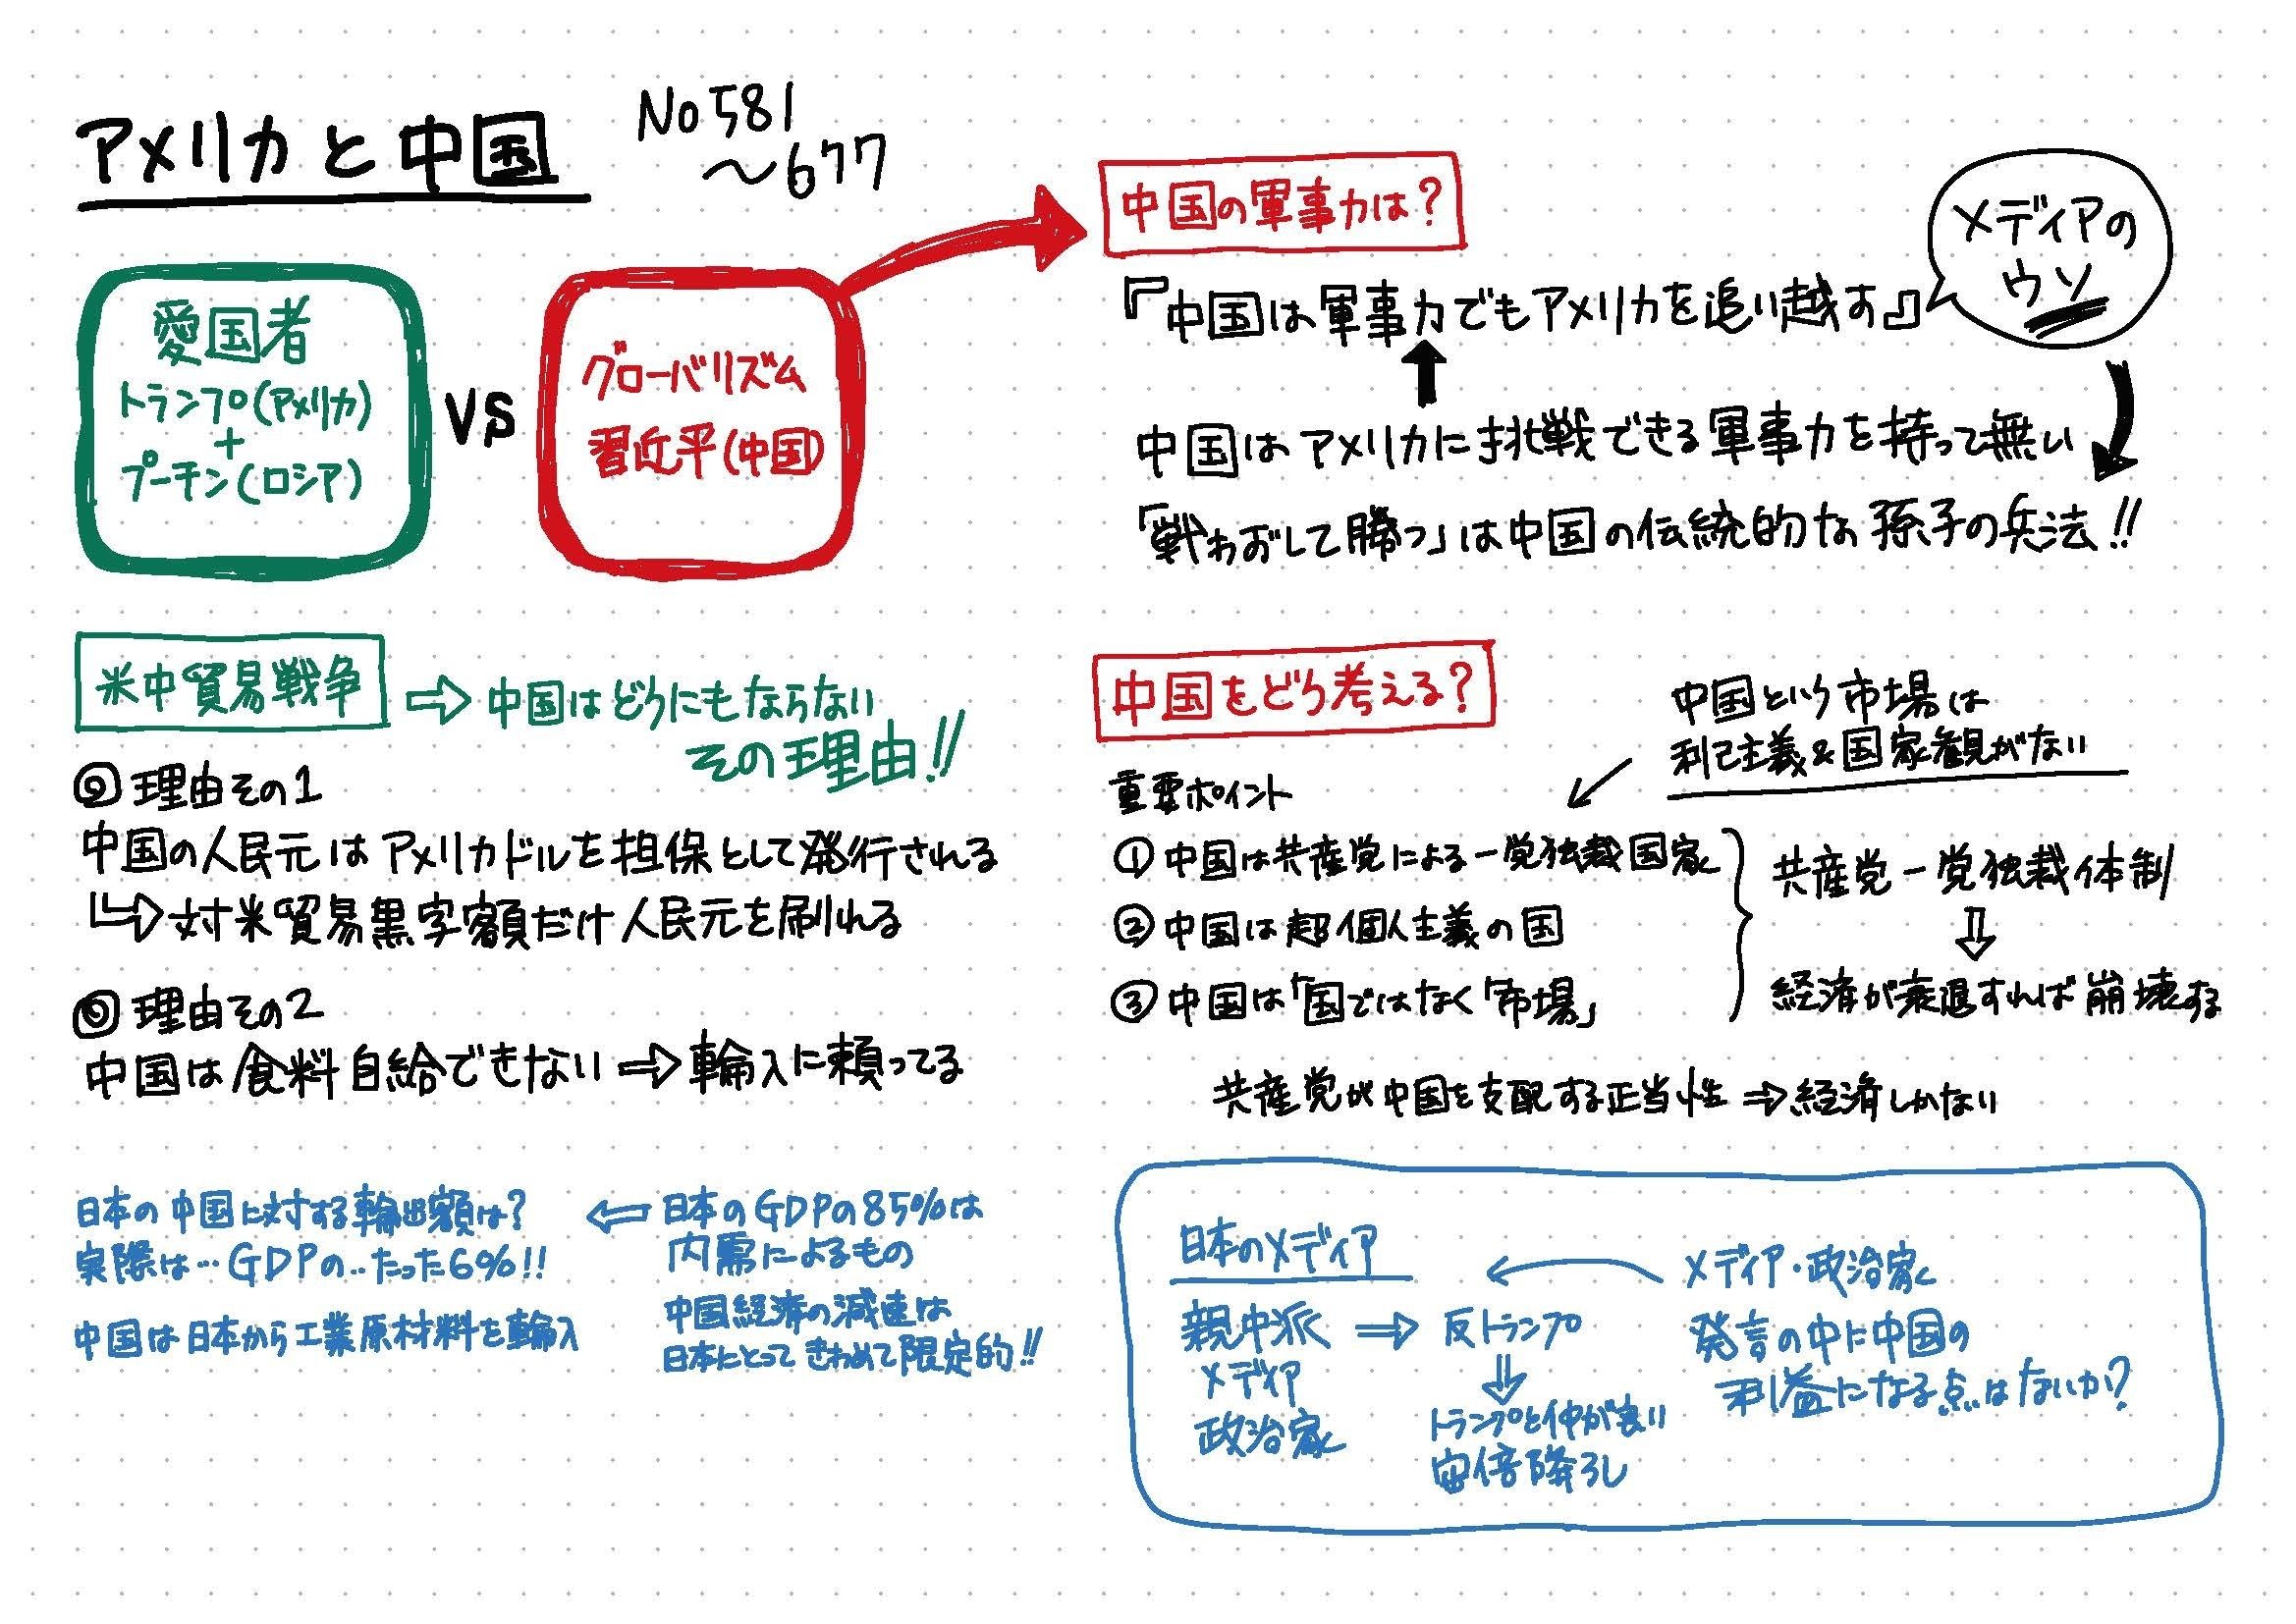 アメリカと中国
No581
～677
愛国者
トランプ(アメリカ)
+
プーチン(ロシア)
VS
グローバリズム
習近平(中国)
米中貿易戦争
⇨中国はどうにもならない
その理由!!
◎理由その1
中国の人民元はアメリカドルを担保として発行される
↳対米貿易黒字額だけ人民元を刷れる
◎理由その2
中国は食料自給できない⇨輸入に頼ってる
日本の中国に対する輸出額は?
実際は…GDPの..たった6%!!
中国は日本から工業原材料を輸入
⇦日本のGDPの85%は
内需によるもの
中国経済の減速は
日本にとってきわめて限定的!!
中国の軍事力は?
『中国は軍事力でもアメリカを追い越す』
メディアの
ウソ
中国はアメリカに挑戦できる軍事力を持って無い
「戦わずして勝つ」は中国の伝統的な孫子の兵法!!
中国をどう考える?
中国という市場は
利己主義&国家観がない
重要ポイント
①中国は共産党による一党独裁国家
②中国は超個人主義の国
③中国は「国ではなく「市場」
共産党一党独裁体制
⇩
経済が衰退すれば崩壊する
共産党が中国を支配する正当性⇨経済しかない
日本のメディア
親中派
メディア
政治家
⇨反トランプ
⇩
トランプと仲が良い
安倍降ろし
メディア・政治家
発言の中に中国の
利益になる点はないか?